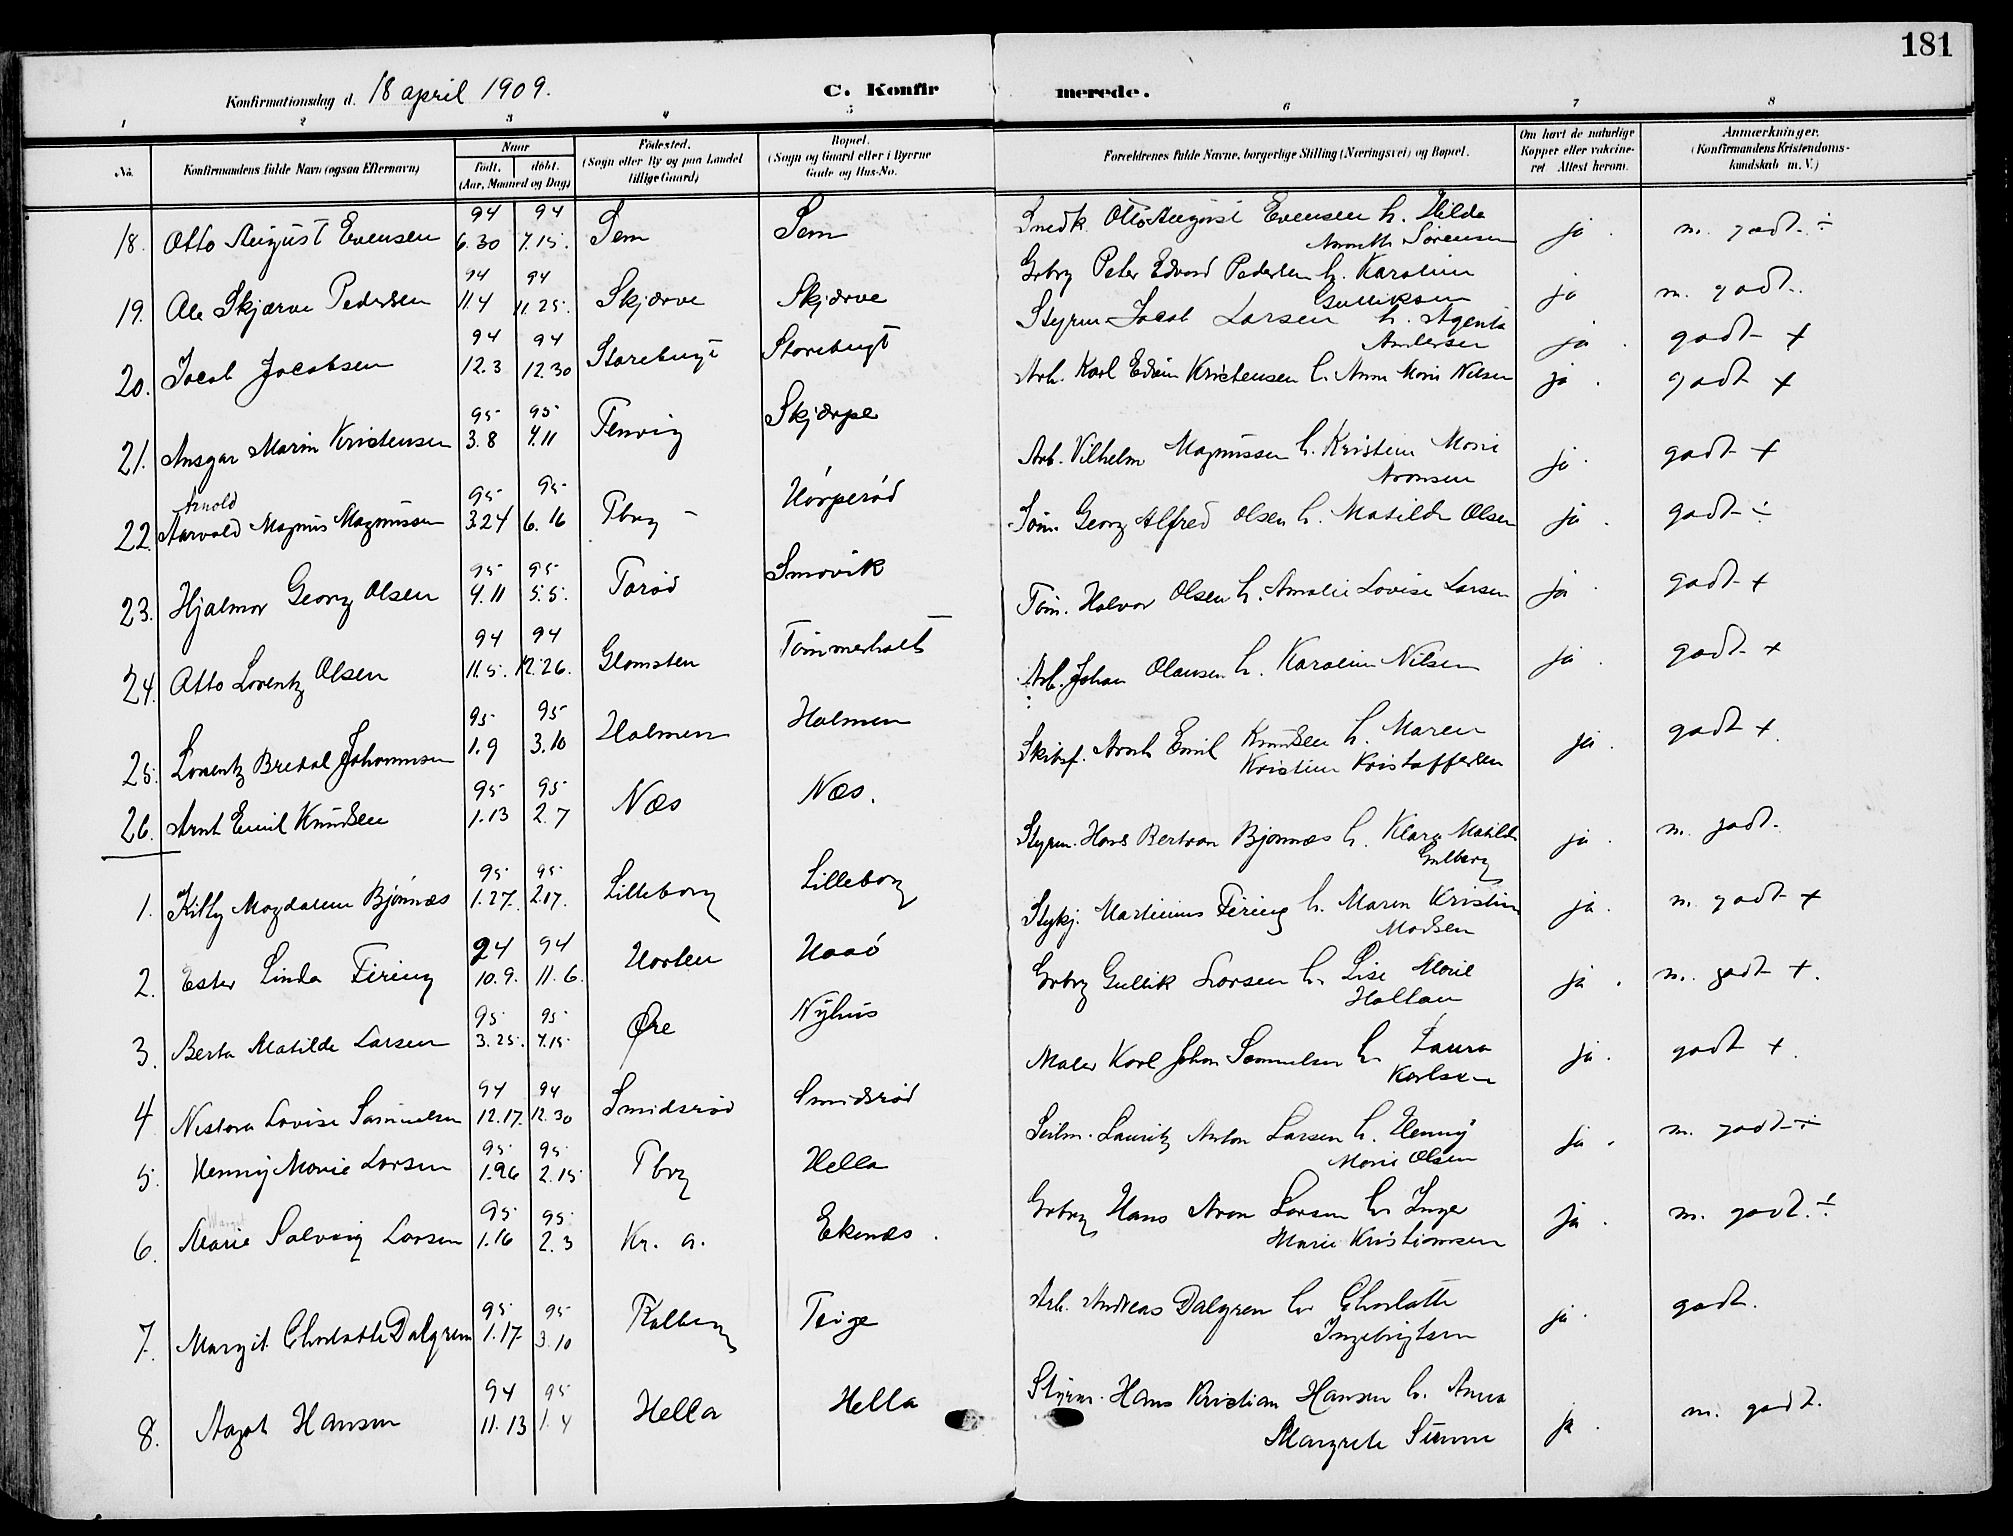 181
Konfirmationsdag d. 18 april 1909.
C. Konfirmerede.
1 2 3 4 5 6 7 8
No. Konfirmandens fulde Navn (ogsaa Efternavn) Naar født, døbt. (Aar, Maaned og Dag) Fødested. (Sogn eller By og paa Landet tillige Gaard) Bopæl. (Sogn og Gaard eller i Byerne Gade og Hus-No. Forældrenes fulde Navne, borgerlige Stilling (Næringsvei) og Bopæl. Om havt de naturlige Kopper eller vaccineret Attest herom. Anmærkninger. (Konfirmandens Kristendomskundskab m. V.)
18. Otto August Evensen 94 6.30 94 7.15. Sem Sem Smedk Otto August Evensen h. Hilda Annette Sørensen ja. m. godt ÷
19. Ole Skjærve Pedersen 94 11.4 94 11.25. Skjærve Skjærve Grbrg Peter Edvard Pedersen h. Karoline Gulliksen ja m. godt.
20. Jacob Jacobsen 94 12.3 94 12.30 Storebugt Storebugt Styrm. Jacob Larsen h. Agenta Andersen ja. godt +
21. Ansgar Marin Kristensen 95 3.8 95 4.11 Tenvig Skjærpe Arb. Karl Edvin Kristensen h. Anna Marie Nilsen ja. godt +
22. Arnold Aarvold Magnus Magnussen 95 3.24 95 6.16 Tbrg Hørperød Arb. Vilhelm Magnussen h. Kristine Marie Aronsen ja. godt +
23. Hjalmar Georg Olsen 95 4.11 95 5.5. Torød Smovik Tøm. Georg Alfred Olsen h. Matilde Olsen ja. godt ÷
24. Otto Lorentz Olsen 94 11.5. 94 12.26. Glomsten Tømmerholt Tøm. Halvor Olsen h. Amalie Lovise Larsen ja. godt +
25. Lorentz Bredal Johannesen 95 1.9 95 3.10 Holmen Holmen Arb. Johan Olausen h. Karoline Nilsen ja. godt +
26. Arnt Emil Knudsen 95 1.13 95 2.7 Næs Næs. Skibsf. Arnt Emil Knudsen h. Maren Kristine Kristoffersen ja. godt +.
1. Kitty Magdalene Bjønnæs 95 1.27. 95 2.17. Lilleborg Lilleborg Styrm. Hans Bertran Bjønnæs h. Klara Matilde Gulberg ja. m. godt.
2. Ester Linda Firing 94 10.9. 94 11.6. Horten Haaø Stykj. Martinius Firing h. Maren Kristine Madsen ja. m. godt +
3. Berta Matilde Larsen 95 3.25. 95 4.15. Øre Nyhus Grbrg Gullik Larsen h. Lise Marie Hollan ja. m. godt +.
4 Nestora Lovise Samuelsen 94 12.17. 94 12.30 Smidsrød Smidsrød Maler Karl Johan Samuelsen h. Laura Karlsen ja. godt +.
5. Henny Marie Larsen 95 1.26 95 2.15 Tbrg Hella Seilm. Lauritz Anton Larsen h. Henny Marie Olsen ja. m. godt ÷
6. Marie Solveig Larsen 95 1.16 95 2.3 Kr. a. Ekenæs. Grbrg Hans Aron Larsen h. Inger Marie Kristiansen ja. m. godt. ÷
7. Margit Charlotte Dalgren 95 1.17 95 3.10 Tolberg Teige Arb. Andreas Dalgren h. Charlotte Ingebrigtsen ja. godt.
8. Aagot Hansen 94 11.13 95 1.4 Hella Hella Styrm. Hans Kristian Hansen h. Anna Margrete Sunne ja. m. godt.